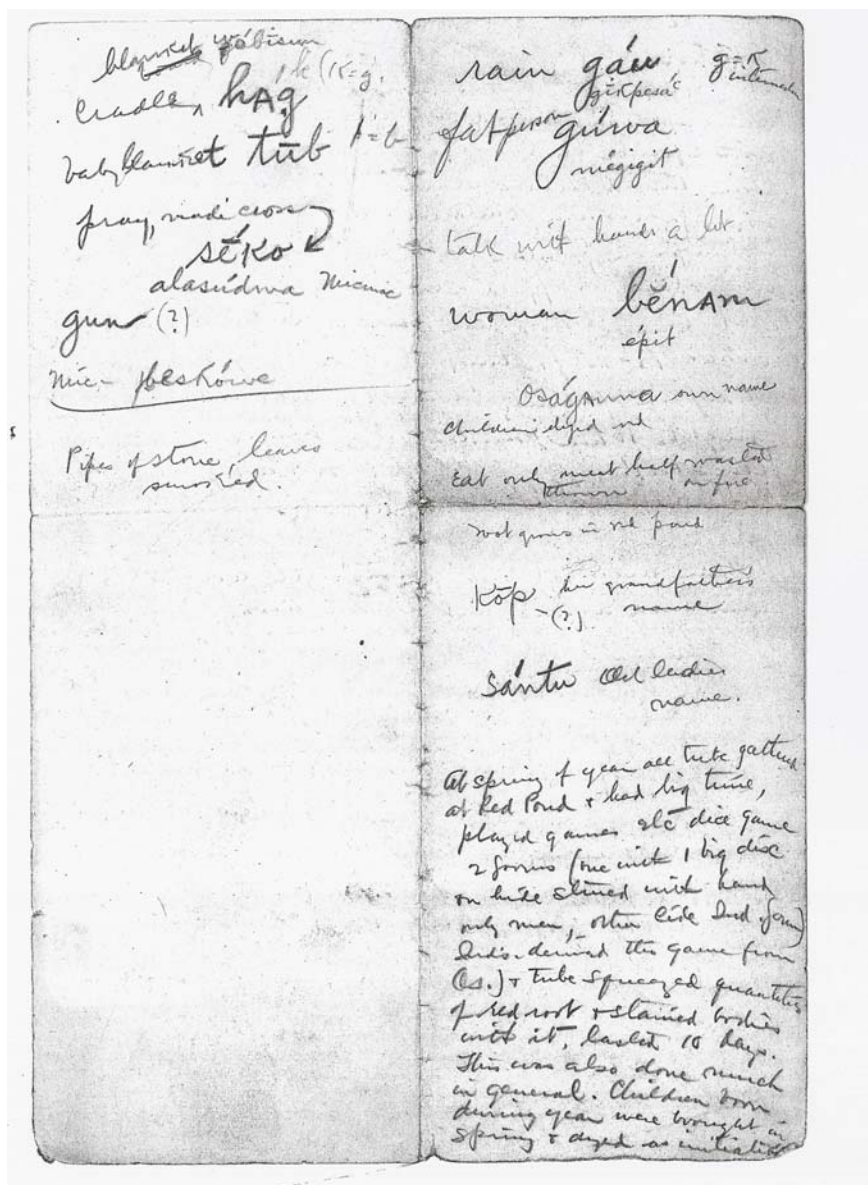 blanket
cradle, hAg
k (k=g.
baby blanket tūb
pray, medicine
sḗko
alasúdwa Micmac
gun (?)
Mic-
Pipes of stone, leaves
smoked.
rain gáu g=k
fat person gúwa
mégigit
talk with hands a lot.
woman bĕ́nAm
épit
Oságanna own name
Children dyed red
Eat only meat half roasted
on fire
root grows in red pond
Kŏp her grandfather's
-(?) name
Sántu Old ladies
name.
At spring of year all tribe gathered
at Red Pond & had big time,
played games etc dice game
2 forms (one with 1 big disc
on hide with hand
only men, other like Ind. form)
Inds. derived this game from
Os.) & tribe squeezed quantities
of red root & stained bodies
with it, lasted 10 days.
This was also done much
in general. Children born
during year were brought in
spring & dyed as initiation